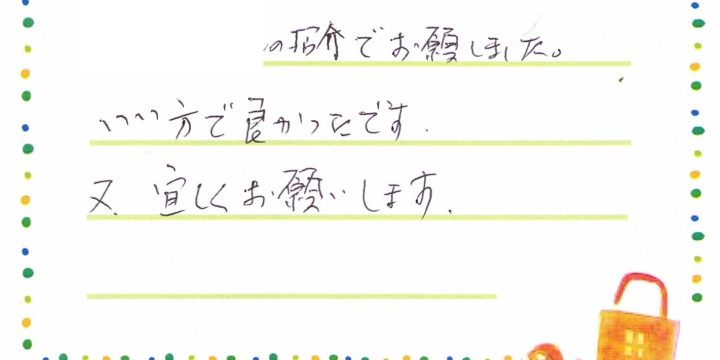 の紹介でお願しました。
いい方で良かったです.
又、宜しくお願いします.